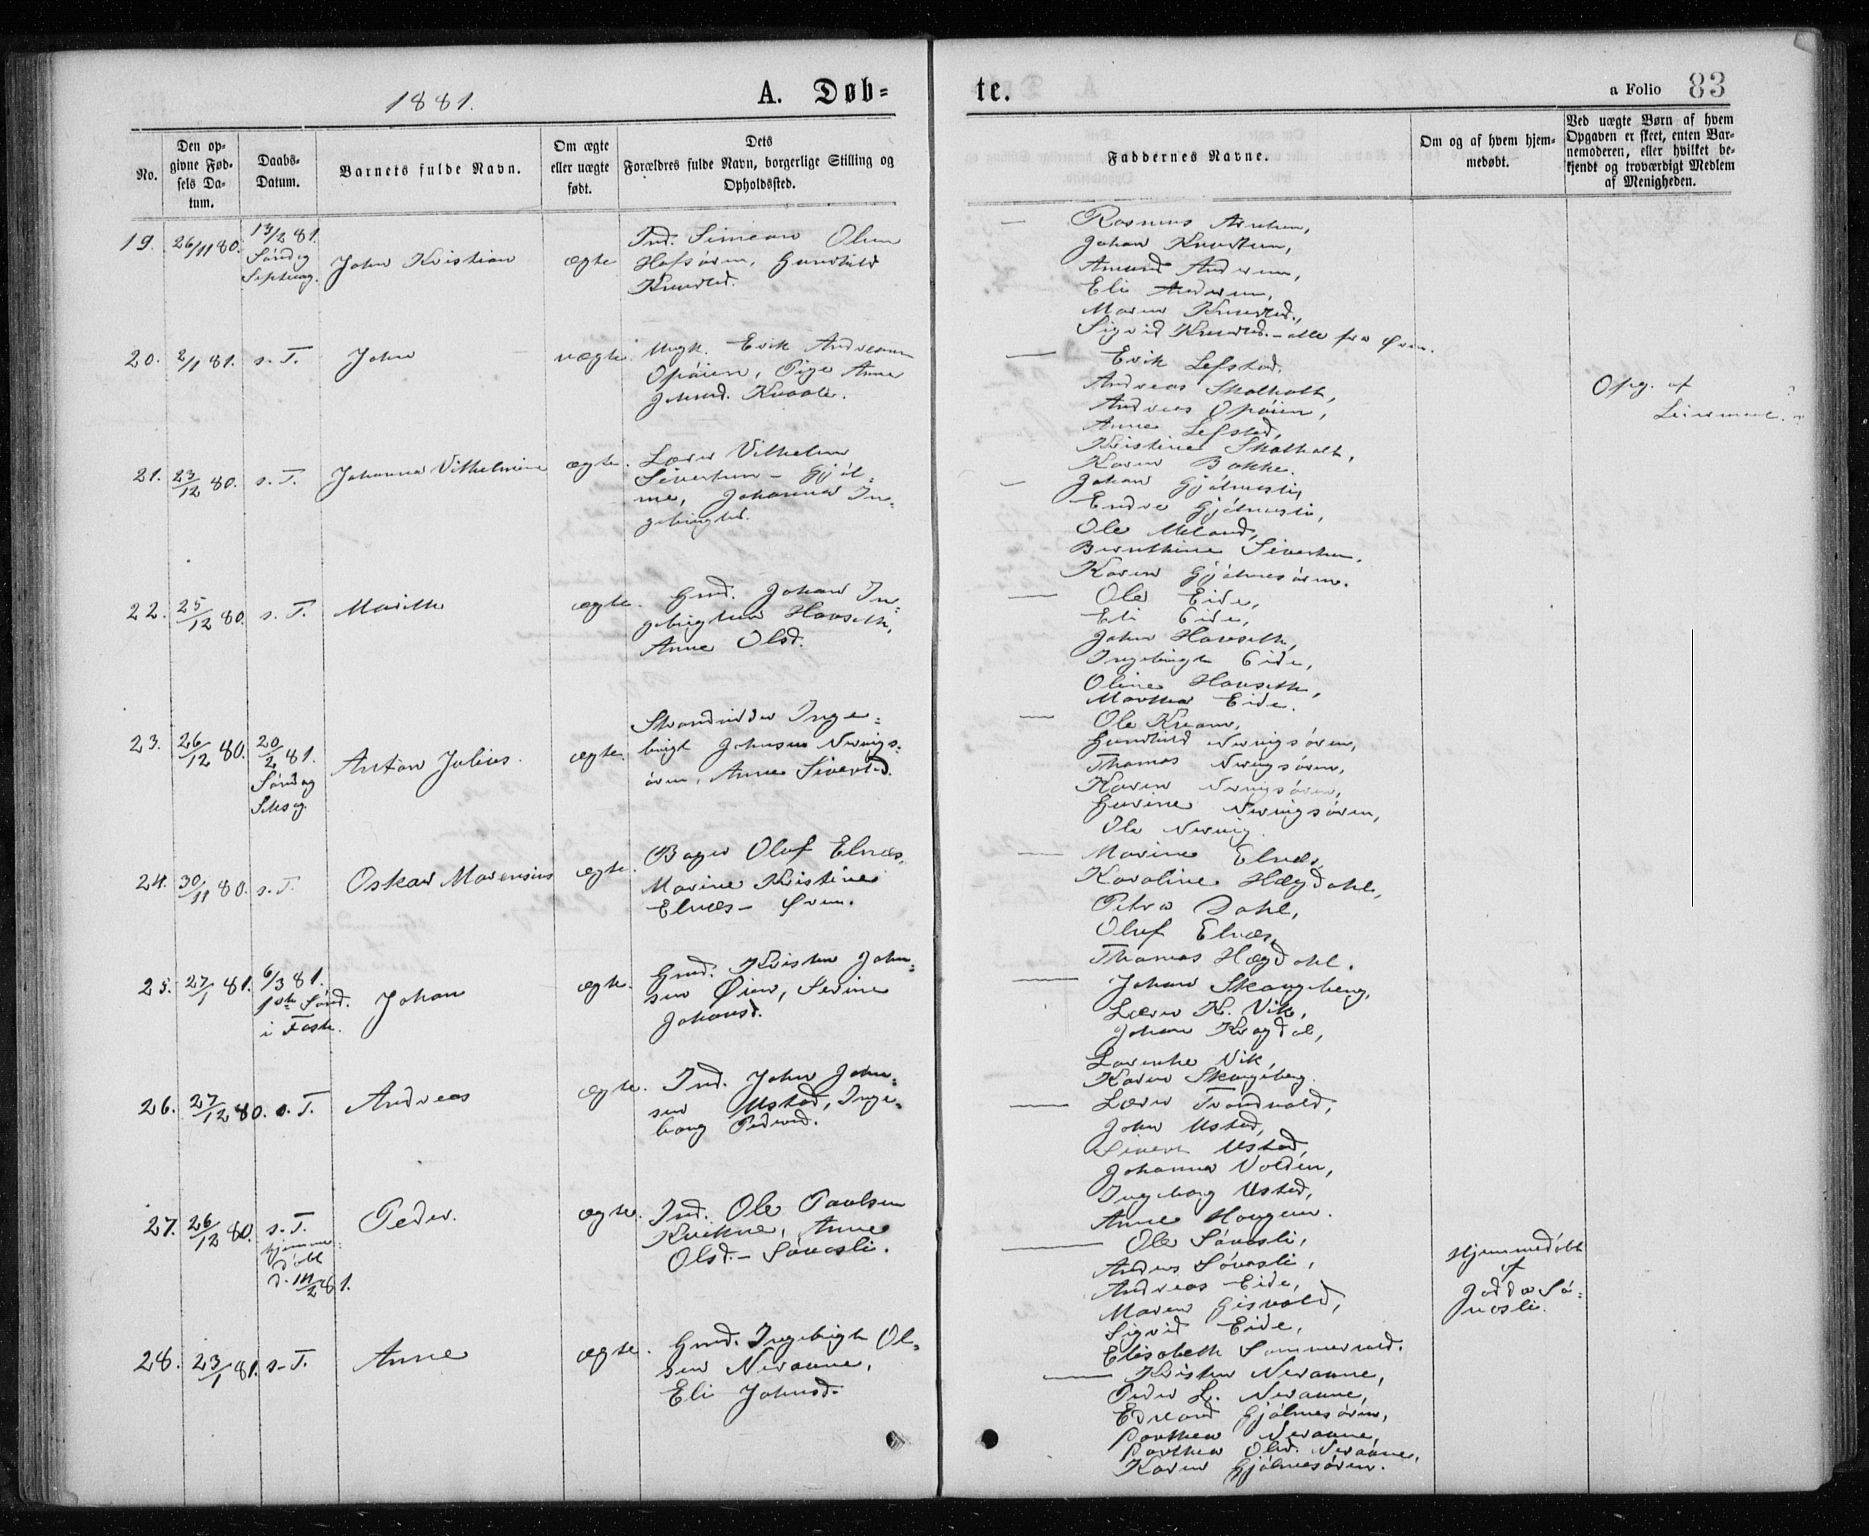 1881.
A. Døb=
te.
a Folio 83
No.
Den op-
givne Fød-
sels Da-
tum.
Daabs-
Datum.
Barnets fulde Navn.
Om ægte
eller uægte
født.
Dets
Forældres fulde Navn, borgerlige Stilling og
Opholdssted.
Faddernes Navne.
Om og af hvem hjem-
medøbt.
Ved uægte Børn af hvem
Opgaven er skeet, enten Bar-
nemoderen, eller hvilket be-
kjendt og troværdigt Medlem
af Menigheden.
19. 26/11 80.
13/2 81.
Søndag
Septuag.
John Kristian
ægte
Ind. Simeon Olsen
Hofsøren, Gunhild
Knudsd.
Rasmus
Johan Knudsen,
Amund Andersen,
Eli Andersen,
Maren Knudsd.,
Sigrid Knudsd. - alle fra Øren.
20. 2/1 81. s. T. John
uægte.
Ungk. Erik Andreasen
Opøien, Pige Anne
Johnsd. Kvaale.
Erik Lefstad,
Andreas Skolholt,
Andreas Opøien,
Anne Lefstad,
Kristine Skolholt,
Karen Bakke.
Opg. af
21. 23/12 80. s. T. Johanna Vilhelmine
ægte.
Lærer Vilhelm
Sivertsen - Gjöl-
me, Johanna In-
gebrigtsd.
Johan Gjølmesli,
Endre Gjølmesli,
Ole Meland,
Bernthine Sivertsen,
Karen Gjølmesøren.
22. 25/12 80. s. T. Marith
ægte.
Gmd. Johan In-
gebrigtsen Havseth,
Anne Olsd.
Ole Eide,
Eli Eide,
John Havseth,
Ingebrigt Eide,
Oline Havseth,
Marthea Eide.
23. 26/12 80.
20/2 81.
Søndag
Seksag.
Anton Julius.
ægte.
Strandsidder Inge-
brigt Johnsen Nervigs-
øren, Anne Sivertsd.
Ole
Gunhild Nervigsøren,
Thomas Nervigsøren,
Karen Nervigsøren,
Gurine Nervigsøren,
Ole Nervig.
24. 30/11 80. s. T. Oskar Marensius
ægte.
Bager Oluf Elnæs,
Marine Kristine
Elnæs - Øren.
Marine Elnæs,
Karoline Hægdahl,
Petra Dahl,
Oluf Elnæs,
Thomas Hægdahl.
25. 27/1 81.
6/3 81.
1ste Sønd.
i Faste.
Johan
ægte.
Gmd. Kristen John-
sen Øien, Serine
Johansd.
Johan Skaugberg,
Lærer K. Vik,
Johan Krogdal,
Lorentse Vik,
Karen Skaugberg.
26. 27/12 80. s. T. Andreas
ægte.
Ind. John John-
sen Ustad, Inge-
borg Pedersd.
Lærer Trondvold,
John Ustad,
Sivert Ustad,
Johanna Volden,
Ingeborg Ustad,
Anne Haugen.
27. 26/12 80.
s. T.
hjemme-
døbt
d. 14/2 81.
Peder.
ægte.
Ind. Ole Paulsen
Kvikne, Anne
Olsd. - Søvasli.
Ole Søvasli,
Anders Søvasli,
Andreas Eide,
Maren Gisvold,
Sigrid Eide,
Elisabeth Sommervold.
Hjemmedøbt
af
Jodda Sø-
vasli.
28. 23/1 81. s. T. Anne
ægte.
Gmd. Ingebrigt Ol-
sen Neraune,
Eli Johnsd.
Kristen Neraune,
Peder L. Neraune,
Edvard Gjølmesøren,
Dorthea Neraune,
Dorthea Olsd. Neraune,
Karen Gjølmesøren.